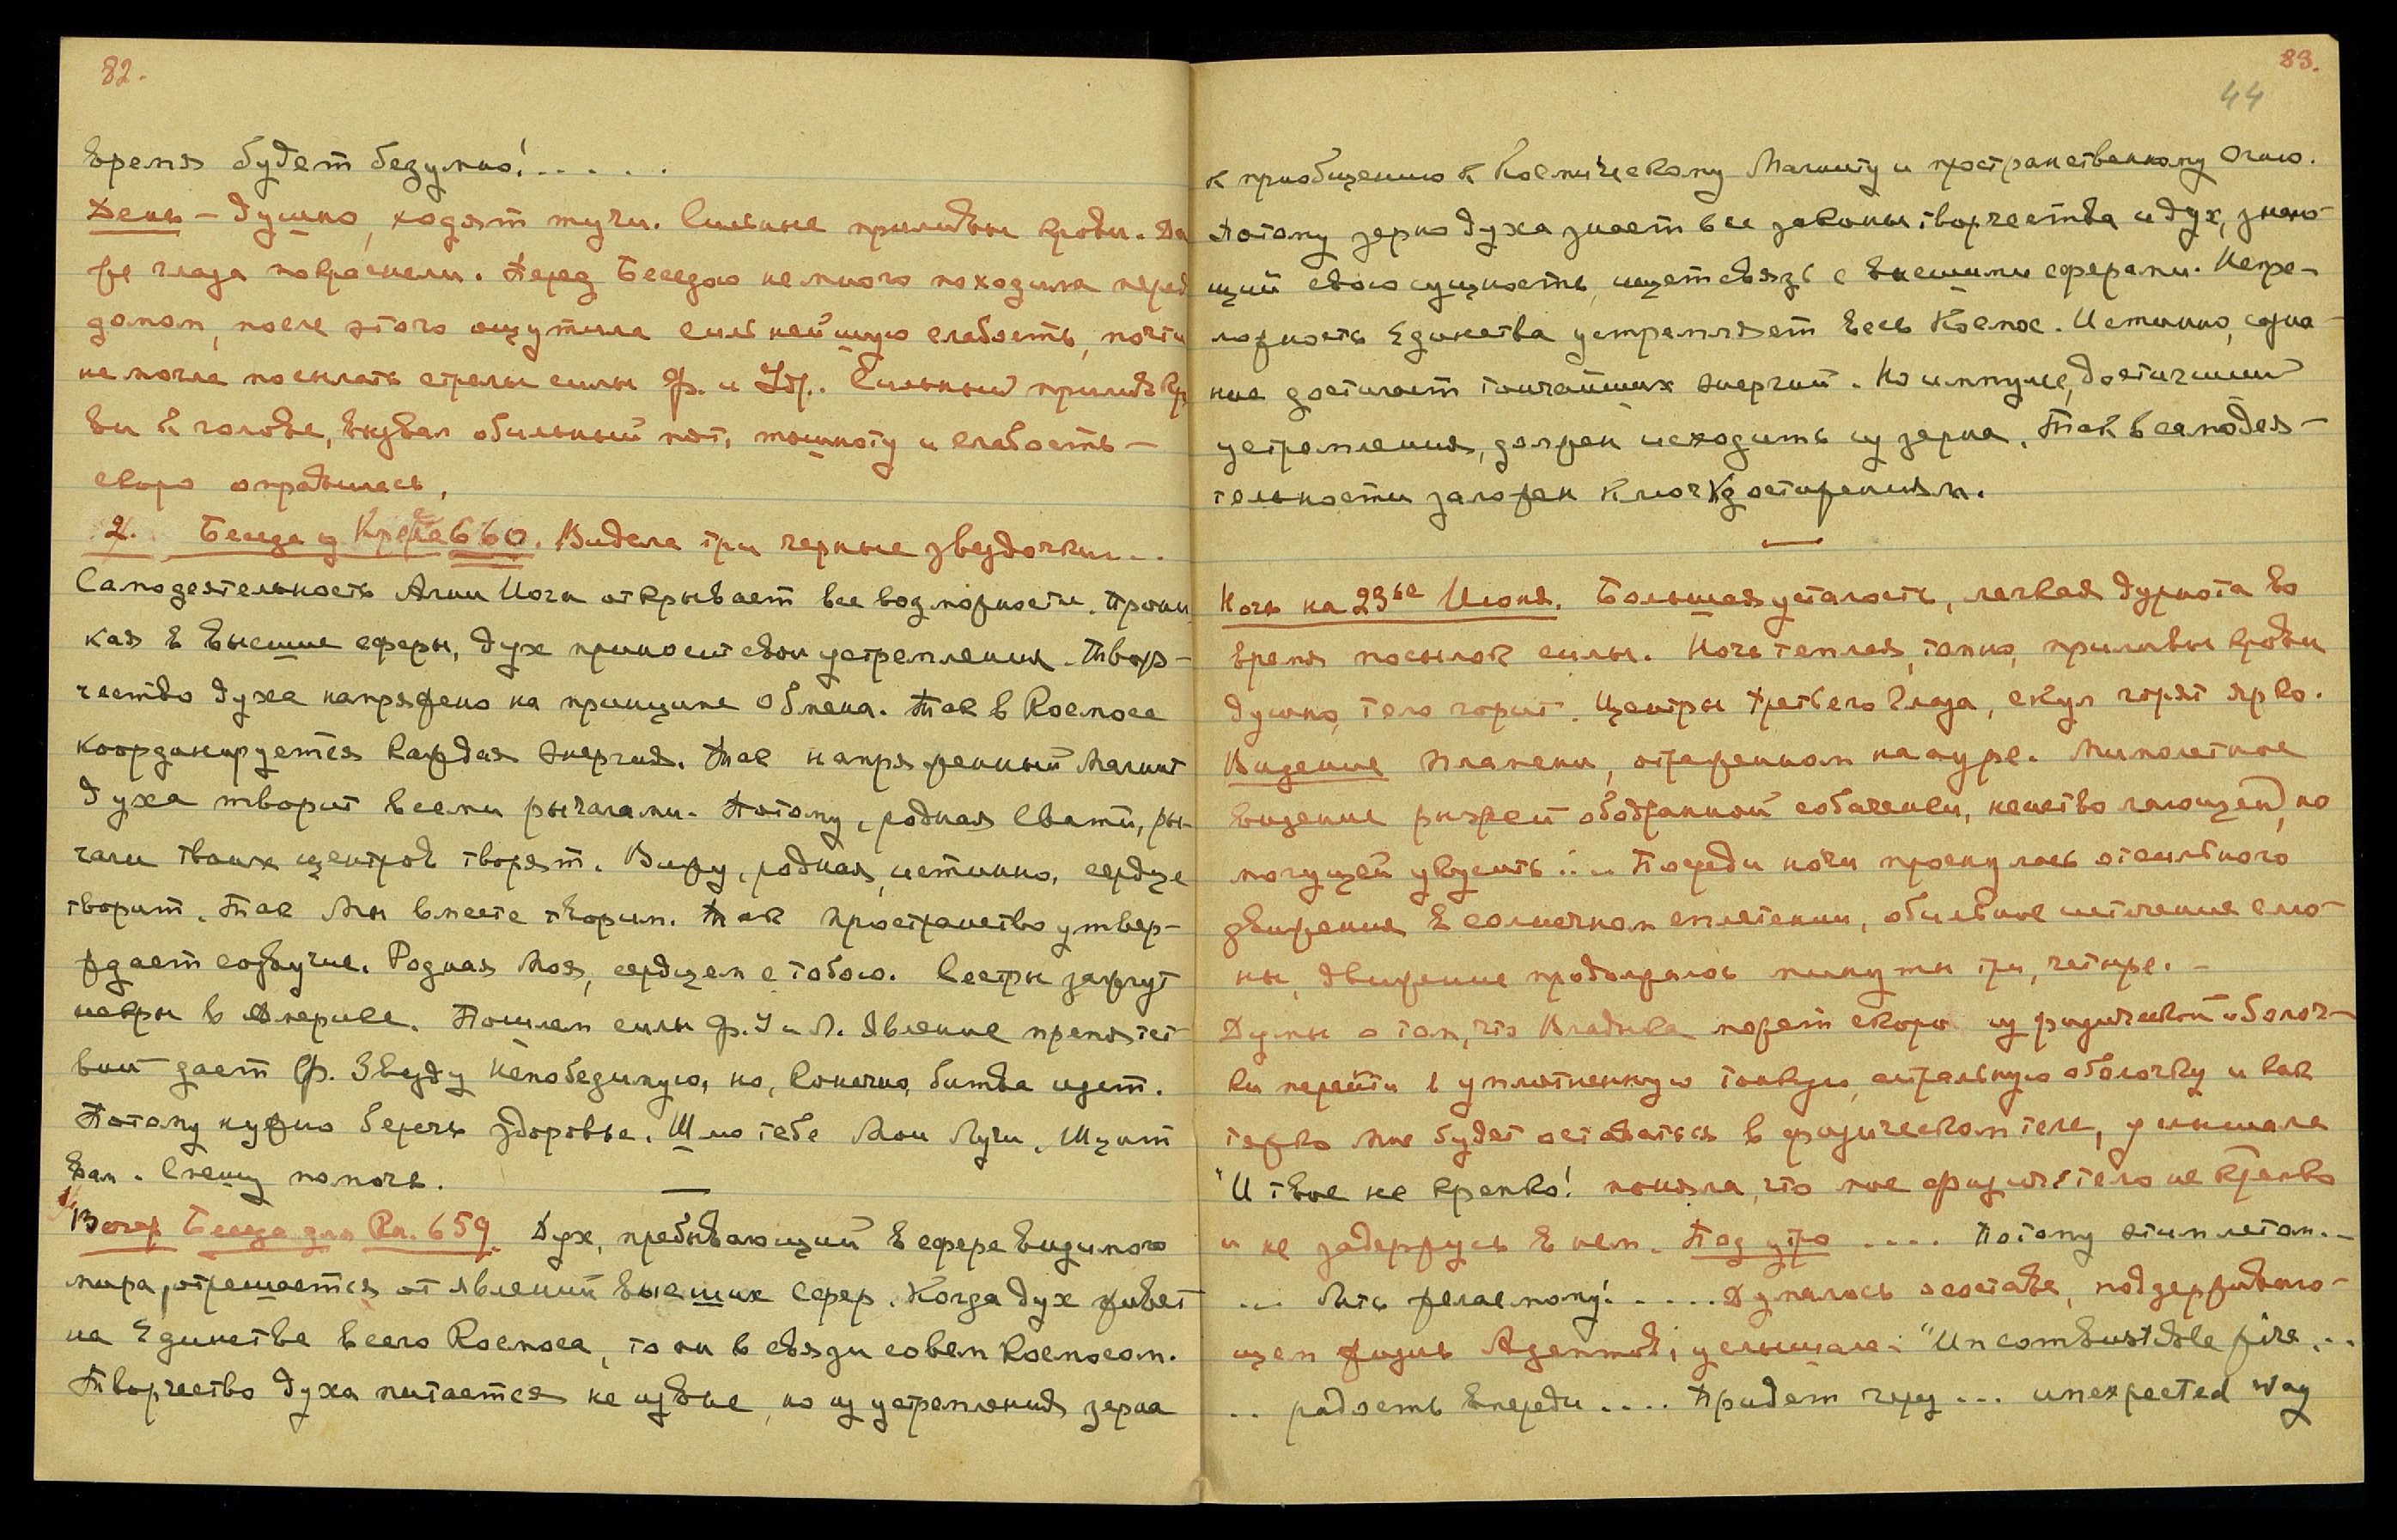 82.
Время будет безумно! . . . . .
День – душно, ходят тучи. Сильные приливы крови. Да
же глаза покраснели. Перед Беседою немного походила перед
домом, после этого ощутила сильнейшую слабость, почти
не могла посылать стрелы силы Ф. и Удр. Сильный прилив кро
ви к голове, вызвал обильный пот, тошноту и слабость –
скоро оправилась.
2. Беседа 660. Видела три черные звездочки...
Самодеятельность Агни Йога открывает все возможности. Прони
кая в высшие сферы, дух приносит свои устремления. Твор-
чество духа напряжено на принципе обмена. Так в Космосе
координируется каждая энергия. Так напряженный Магнит
духа творит всеми рычагами. Потому, родная Свати, ры-
чаги твоих центров творят. Вижу, родная, истинно, сердце
творит. Так Мы вместе творим. Так пространство утвер-
ждает созвучие. Родная Моя, сердцем с тобою. Сестры зажгут
искры в Америке. Пошлем силы Ф. У и Л. Явление препятст-
вий дает Ф. Звезду Непобедимую, но, конечно, битва идет.
Потому нужно беречь здоровье. Шлю тебе Мои Лучи. Щит
Вам. Спешу помочь.
1/ Вечер Беседа для Кн. 659. Дух, пребывающий в сфере видимого
мира, отрешается от явлений высших сфер. Когда дух живет
на Единстве всего Космоса, то он в связи со всем Космосом.
Творчество духа питается не извне, но из устремления зерна
83.
44
к приобщению к Космическому Магниту и пространственному Огню.
Потому зерно духа знает все законы творчества и дух, знаю-
щий свою сущность, ищет связь с высшими сферами. Непре-
ложность Единства устремляет весь Космос. Истинно, созна-
ние достигает тончайших энергий. Но импульс, достигший
устремления, должен исходить из зерна. Так в самодея-
тельности заложен ключ к достижениям.
Ночь на 23ье Июня. Большая усталость, легкая дурнота во
время посылок силы. Ночь теплая, томно, приливы крови
душно, тело горит. Центры третьего Глаза, скул горят ярко.
Видение пламени, отраженном на ауре. Мимолетное
видение рыжей ободранной собаченки, неистово лающей, но
могущей укусить... Посреди ночи проснулась от сильного
движения в солнечном сплетении, обильное истечение слю-
ны, движение продолжалось минуты три, четыре. –
Думы о том, что Владыка может скоро из физической оболоч-
ки перейти в уплотненную тонкую, астральную оболочку и как
тяжко мне будет оставаться в физическом теле, услышала
"И твое не крепко! поняла, что мое физич. тело не крепко
и не задержусь в нем. Под утро .... Потому этим летом. –
... быть желаемому! . . . . . Думалось о составе, поддерживаю-
щем жизнь Адептов, услышала: "Uncombustible fire...
.. радость впереди .... Придет чрез ... unexpected way